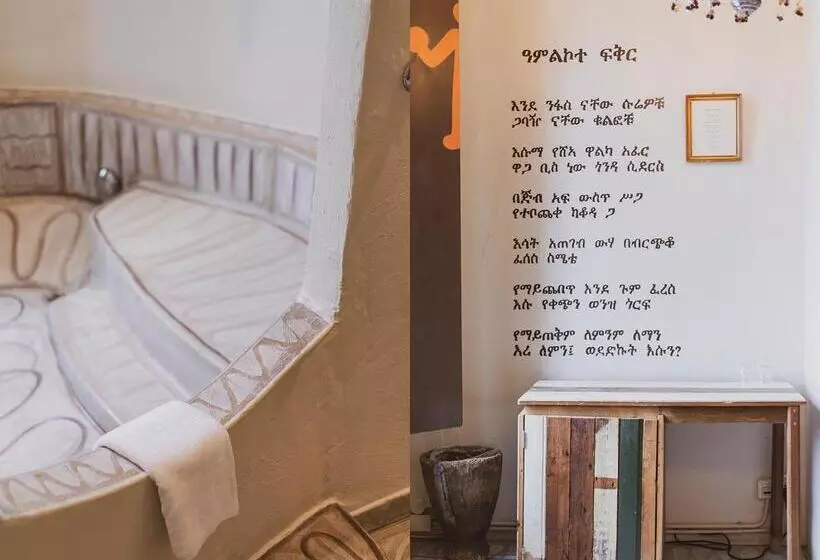 ዓምልኮተ ፍቅር
እንደ ንፋስ ናቸው ሱሬዎቹ
ጋባዥ ናቸው ቁልፎቹ
እሱማ የሸኣ ዋልካ አፈር
ዋጋ ቢስ ነው ጎንዳ ሲደርስ
በጅብ አፍ ውስጥ ሥጋ
የተቦጫቀ ከቆዳ ጋ
እሳት አጠገብ ውሃ በብርጭቆ
ፈሰስ ስሜቴ
የማይጨበጥ እንደ ጉም ፈረስ
እሱ የቀጭን ወንዝ ጎርፍ
የማይጠቅም ለምንም ለማን
እረ ለምን፤ ወደድኩት እሱን?